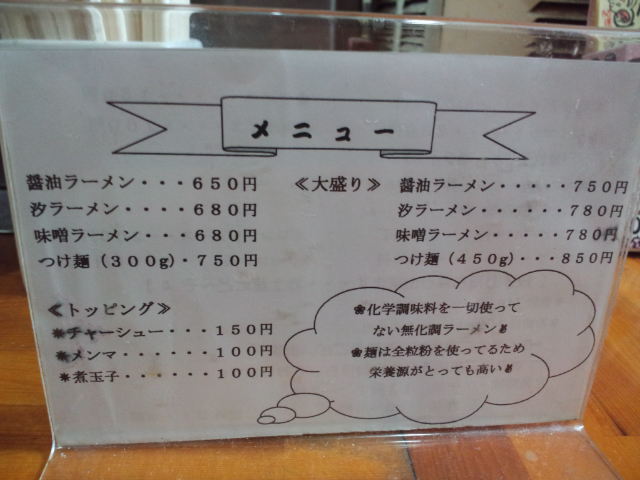 メニュー
醤油ラーメン・・・650円
汐ラーメン・・・・680円
味噌ラーメン・・・680円
つけ麺(300g)・750円
≪大盛り≫
醤油ラーメン・・・・・750円
汐ラーメン・・・・・・780円
味噌ラーメン・・・・・780円
つけ麺(450g)・・・850円
≪トッピング≫
*チャーシュー・・・150円
*メンマ・・・・・・100円
*煮玉子・・・・・・100円
❀化学調味料を一切使って
ない無化調ラーメン
❀麺は全粒粉を使ってるため
栄養源がとっても高い